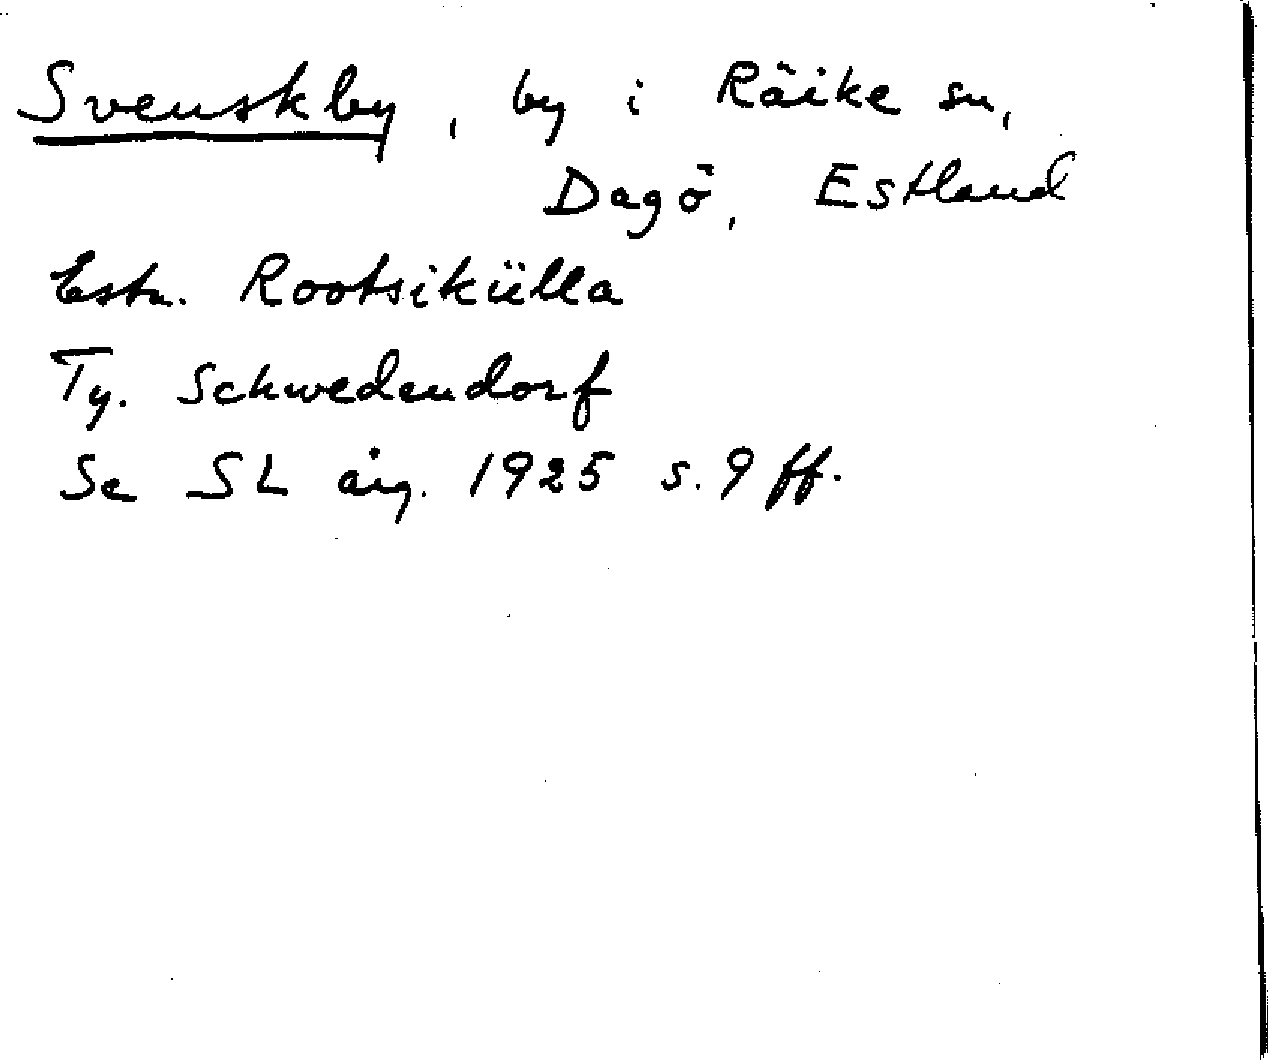 Svenskby, by i Räike sn,
Dagö, Estland
Estn. Rootsikülla
Ty. Schwedendorf
Se SL årg. 1925 s. 9 ff.